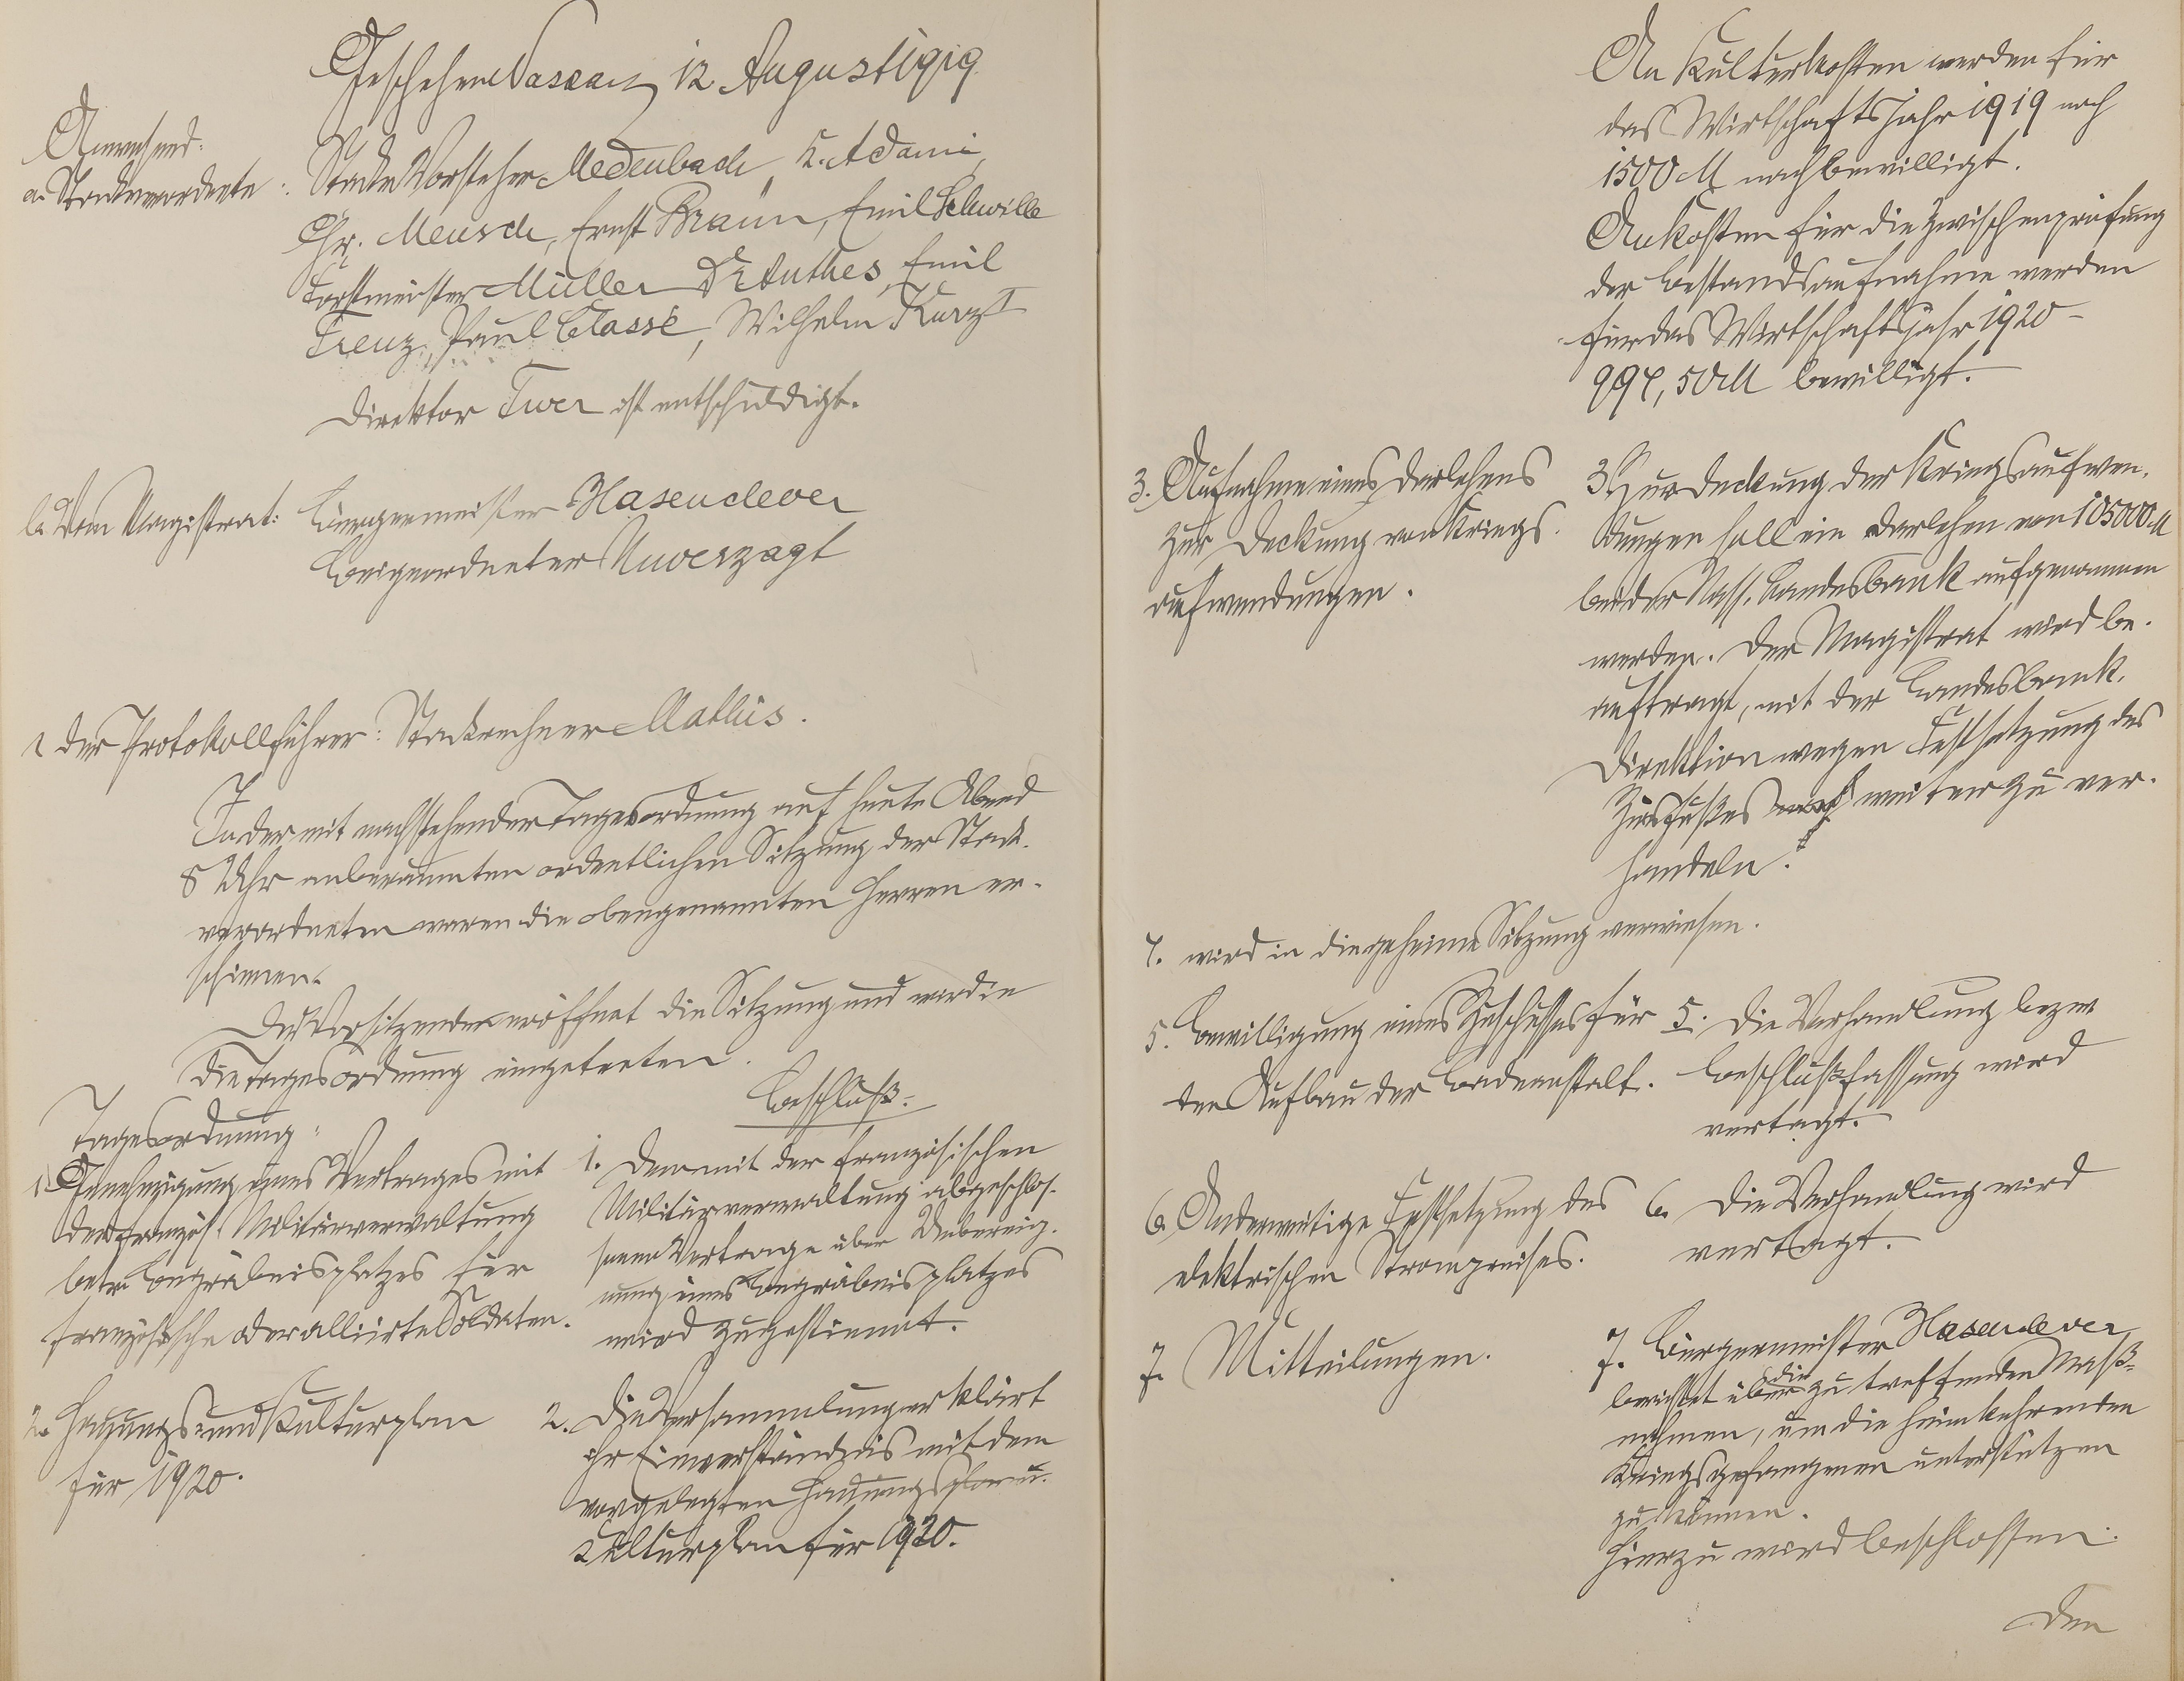 Geschehen Nassau, 12. August 1919
Anwesend:
a. Stadtverordnete: Stadtv. Vorsteher Medenbach, K. Adami,
Chr. Meusch, Ernst Braun, Emil Schwille
Forstmeister Müller Dr Anthes, Emil
Trenz, Paul Classé, Wilhelm Kurz I
Direktor Twer ist entschuldigt.
b. Vom Magistrat: Bürgermeister Hasenclever
Beigeordneter Unverzagt
c der Protokollführer: Stadtrechner Mathis.
In der mit nachstehender Tagesordnung auf heute Abend
8 Uhr anberaumten ordentlichen Sitzung der Stadt-
verordneten waren die obengenannten Herren er-
schienen.
Der Vorsitzende eröffnet die Sitzung und wird in
die Tagesordnung eingetreten.
Tagesordnung:
1. Genehmigung eines Vertrages mit
der französ. Militärverwaltung
betr. Begräbnisplatzes für
französische oder alliierte Soldaten.
2. Hauungs- und Kulturplan
für 1920.
Beschluß:
1. Dem mit der französischen
Militärverwaltung abgeschlos-
senen Vertrage über Uebereig-
nung eines Begräbnisplatzes
wird zugestimmt.
2. Die Versammlung erklärt
ihr Einverständnis mit dem
vorgelegten Hauungsplan u.
Kulturplan für 1920.
An Kulturkosten werden für
das Wirtschaftsjahr 1919 noch
1500 M nachbewilligt.
An Kosten für die Zwischenprüfung
der Bestandsaufnahme werden
für das Wirtschaftsjahr 1920 -
994,50 M bewilligt.
3. Aufnahme eines Darlehens
zur Deckung von Kriegs-
aufwendungen.
3. Zur Deckung der Kriegsaufwen-
dungen soll ein Darlehen von 105000 M
bei der Nass. Landesbank aufgenommen
werden. Der Magistrat wird be-
auftragt, mit der Landesbank-
Direktion wegen Festsetzung des
Zinsfußes noch weiter zu ver-
handeln.
4. wird in die geheime Sitzung verwiesen.
5. Bewilligung eines Zuschusses für
den Aufbau der Badeanstalt.
5. Die Verhandlung bezw
Beschlußfassung wird
vertagt.
6. Anderweitige Festsetzung des
elektrischen Strompreises.
6. Die Verhandlung wird
vertagt.
7. Mitteilungen.
7. Bürgermeister Hasenclever
berichtet über die zu treffenden Maß-
nahmen, um die heimkehrenden
Kriegsgefangenen unterstützen
zu können.
Hierzu wird beschlossen:
Den